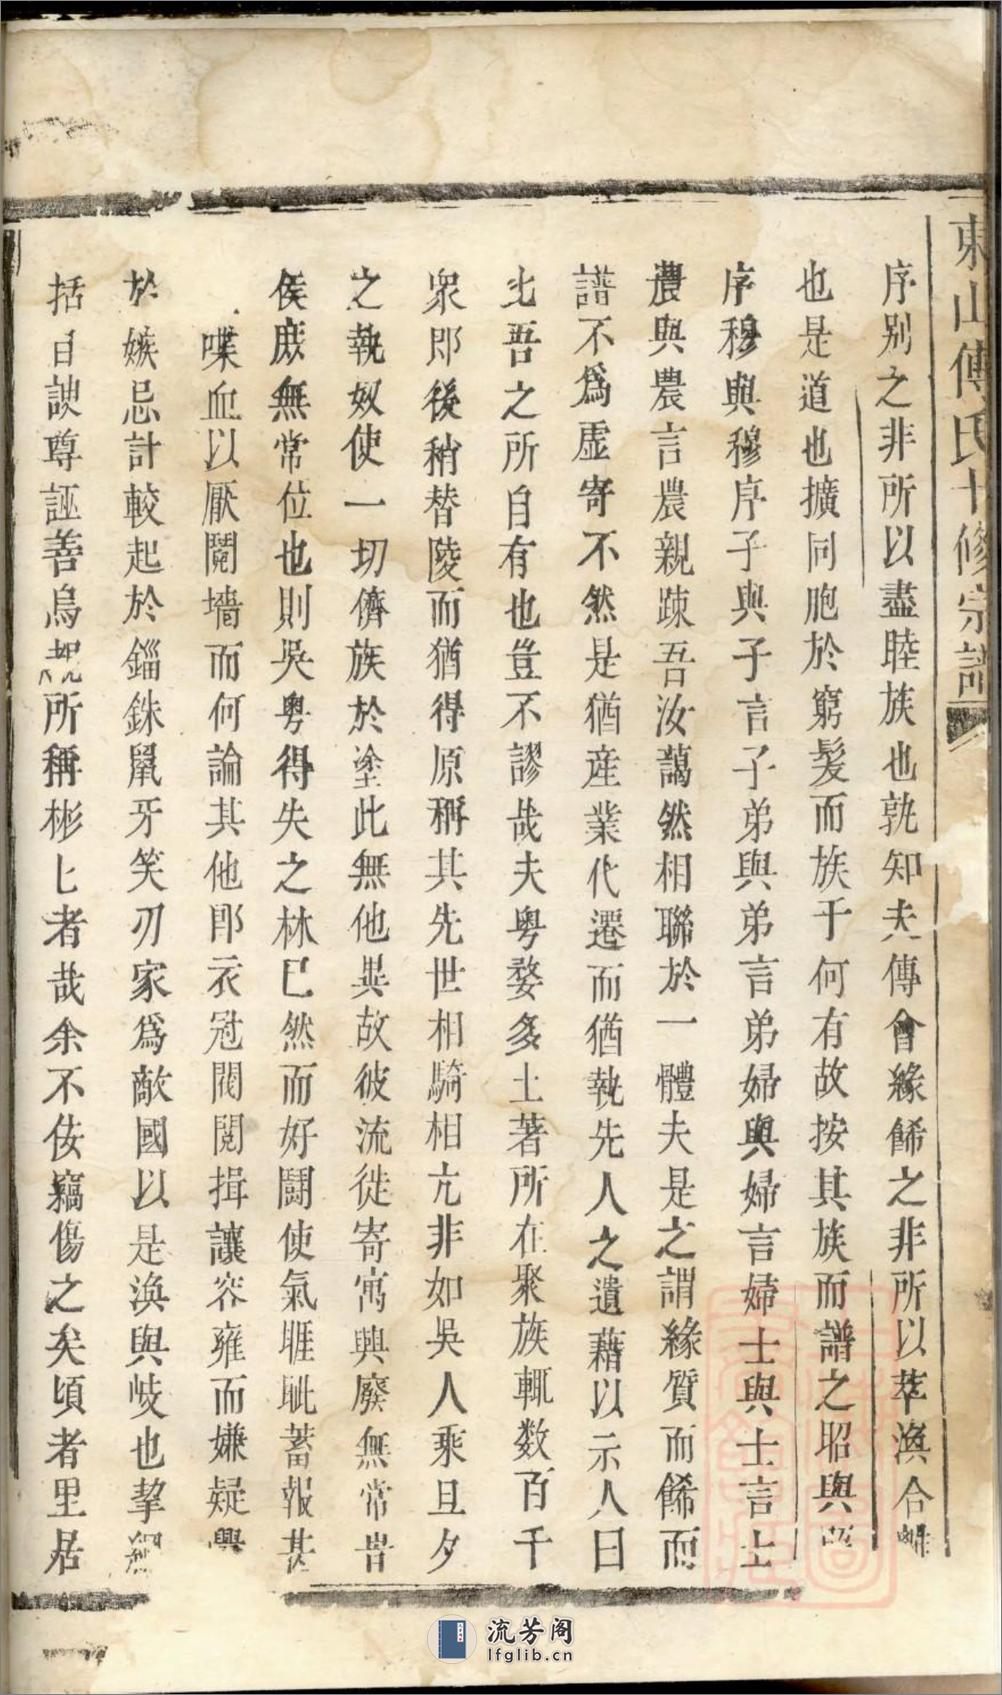 東山傅氏十修宗譜
序別之非所以盡睦族也孰知夫傳會緣餙之非所以萃渙合
也是道也擴同胞於窮髮而族于何有故按其族而譜之昭與
序穆與穆序子與子言子弟與弟言弟婦與婦言婦士與士言士
農與農言農親踈吾汝藹然相聯於一體夫是之謂緣質而餙而
譜不爲虛寄不然是猶産業代遷而猶執先人之遺藉以示人曰
此吾之所自有也豈不謬哉夫粤婺多土著所在聚族輒数百千
衆即後稍替陵而猶得原稱其先世相騎相亢非如吳人乘旦夕
之執奴使一切儕族於塗此無他異故彼流徙寄寓興廢無常昔
侯庻無常位也則吳粤得失之林已然而好鬪使氣睚眦蓄報甚
喋血以厭鬩墻而何論其他即衣冠閥閲揖讓容雍而嫌疑
於嫉忌計較起於錙銖鼠牙笑刃家爲敵國以是渙與岐也挈綱
括目諛尊誣善烏覩所稱彬匕者哉余不佞竊傷之矣頃者里居
流芳阁
lfglib.cn